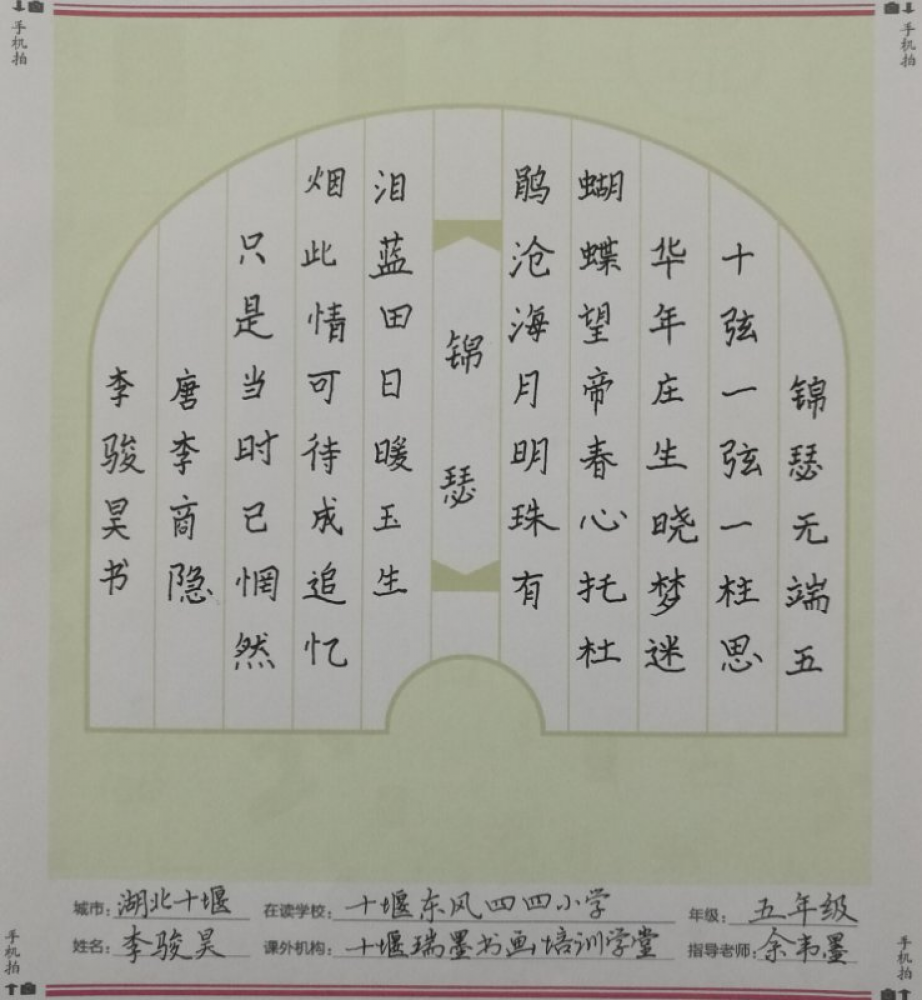 手机拍
手机拍
锦瑟无端五
十弦一弦一柱思
华年庄生晓梦迷
蝴蝶望帝春心托杜
鹃沧海月明珠有
锦瑟
泪蓝田日暖玉生
烟此情可待成追忆
只是当时已惘然
唐李商隐
李骏昊书
城市: 湖北十堰 在读学校: 十堰东风四四小学 年级: 五年级
姓名: 李骏昊 课外机构: 十堰瑞墨书画培训学堂 指导老师: 余韦墨
手机拍
手机拍